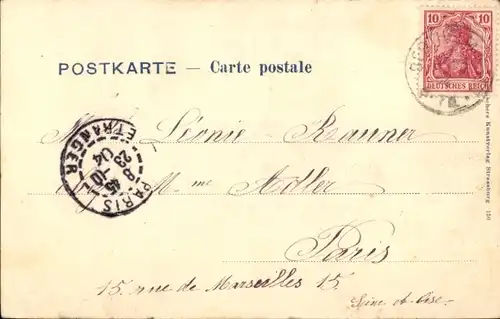 10 10
DEUTSCHES REICH
POSTKARTE — Carte postale
Mlle Léonie Ranner
PARIS ETRANGER
8 45
23 -10
04
Mme Adler
Paris
15 rue de Marseilles 15.
Seine et Oise.
Kunstverlag Strassburg 150